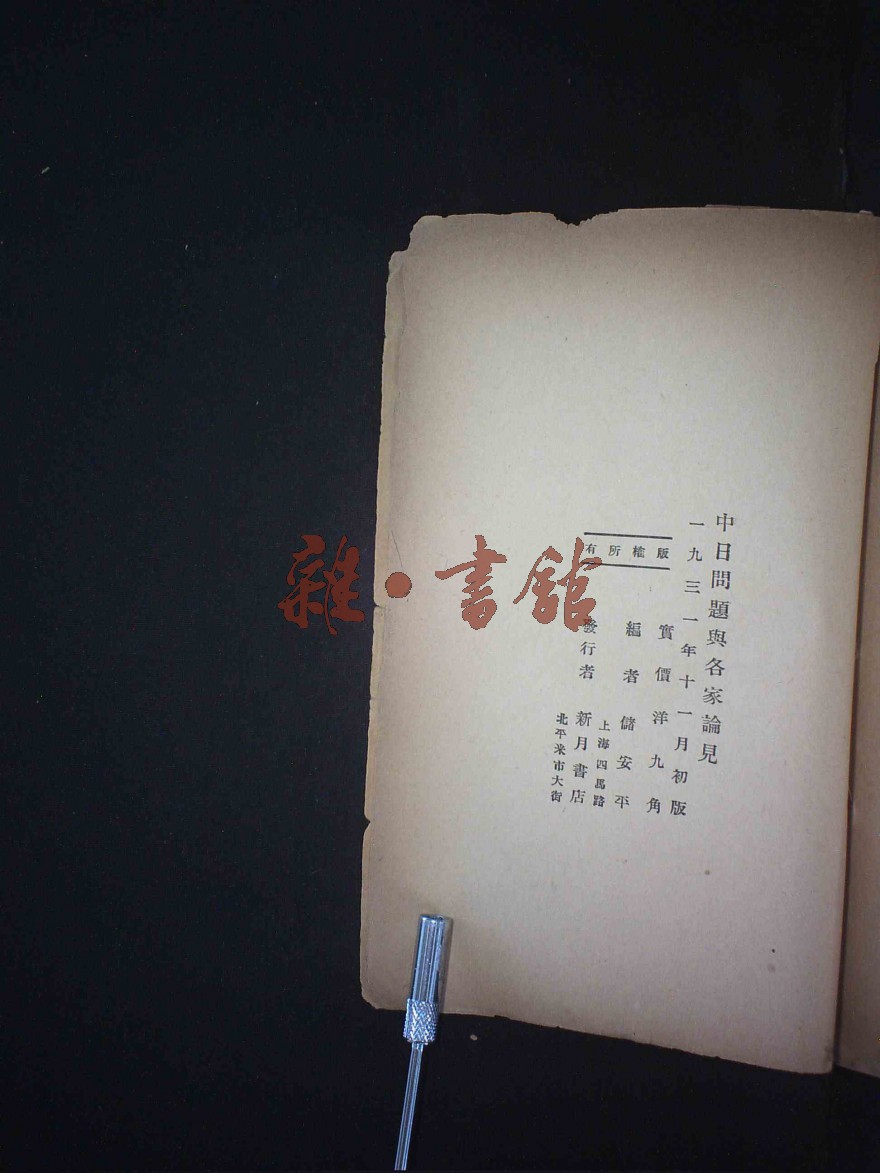 中日問題與各家論見
一九三一年十一月初版
實價洋九角
編者 儲安平
上海四馬路
發行者 新月書店
北平米市大街
版權所有
雜·書舘